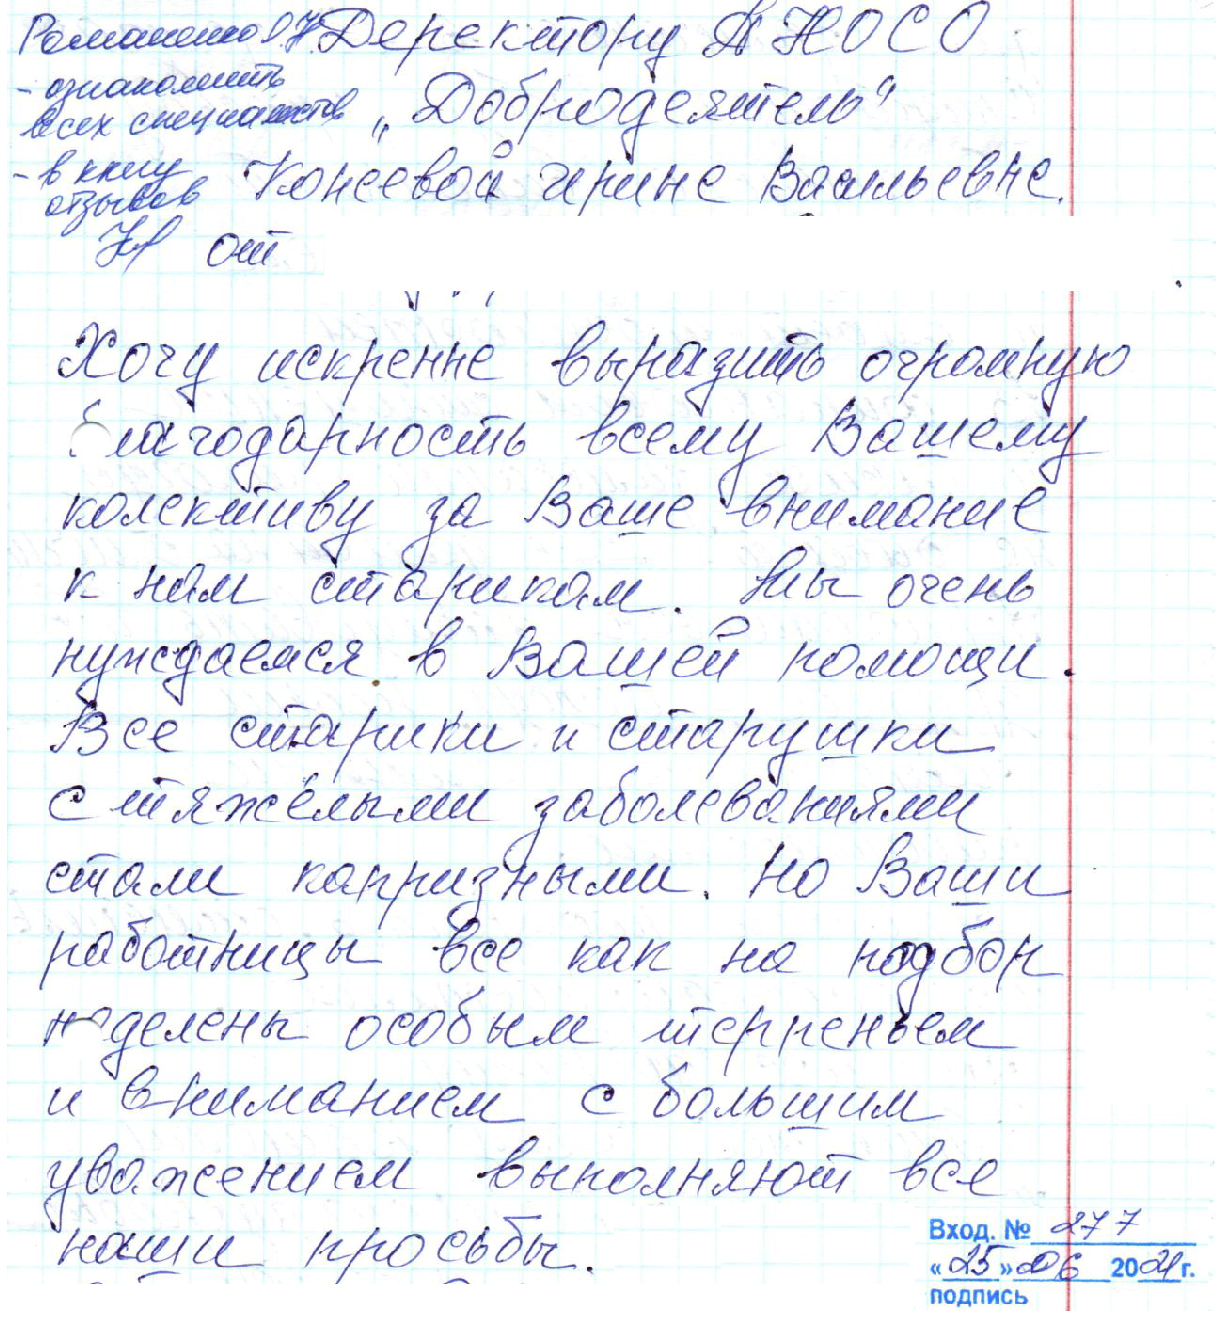 Романенко О.Н.
- ознакомить
всех специалистов
- в книгу
отзывов
Деректору АНОСО
„Добродеятель“
Консевой Ирине Васильевне.
от
Хочу искренне выразить огромную
благодарность всему Вашему
колективу за Ваше внимание
к нам старикам. Мы очень
нуждаемся в Вашей помощи.
Все старики и старушки
с тяжёлыми заболеваниями
стали капризными. Но Ваши
работницы все как на подбор
наделены особым терпеньем
и вниманием с большим
уважением выполняют все
наши просьбы.
Вход. № 277
«25» 06 2021г.
подпись